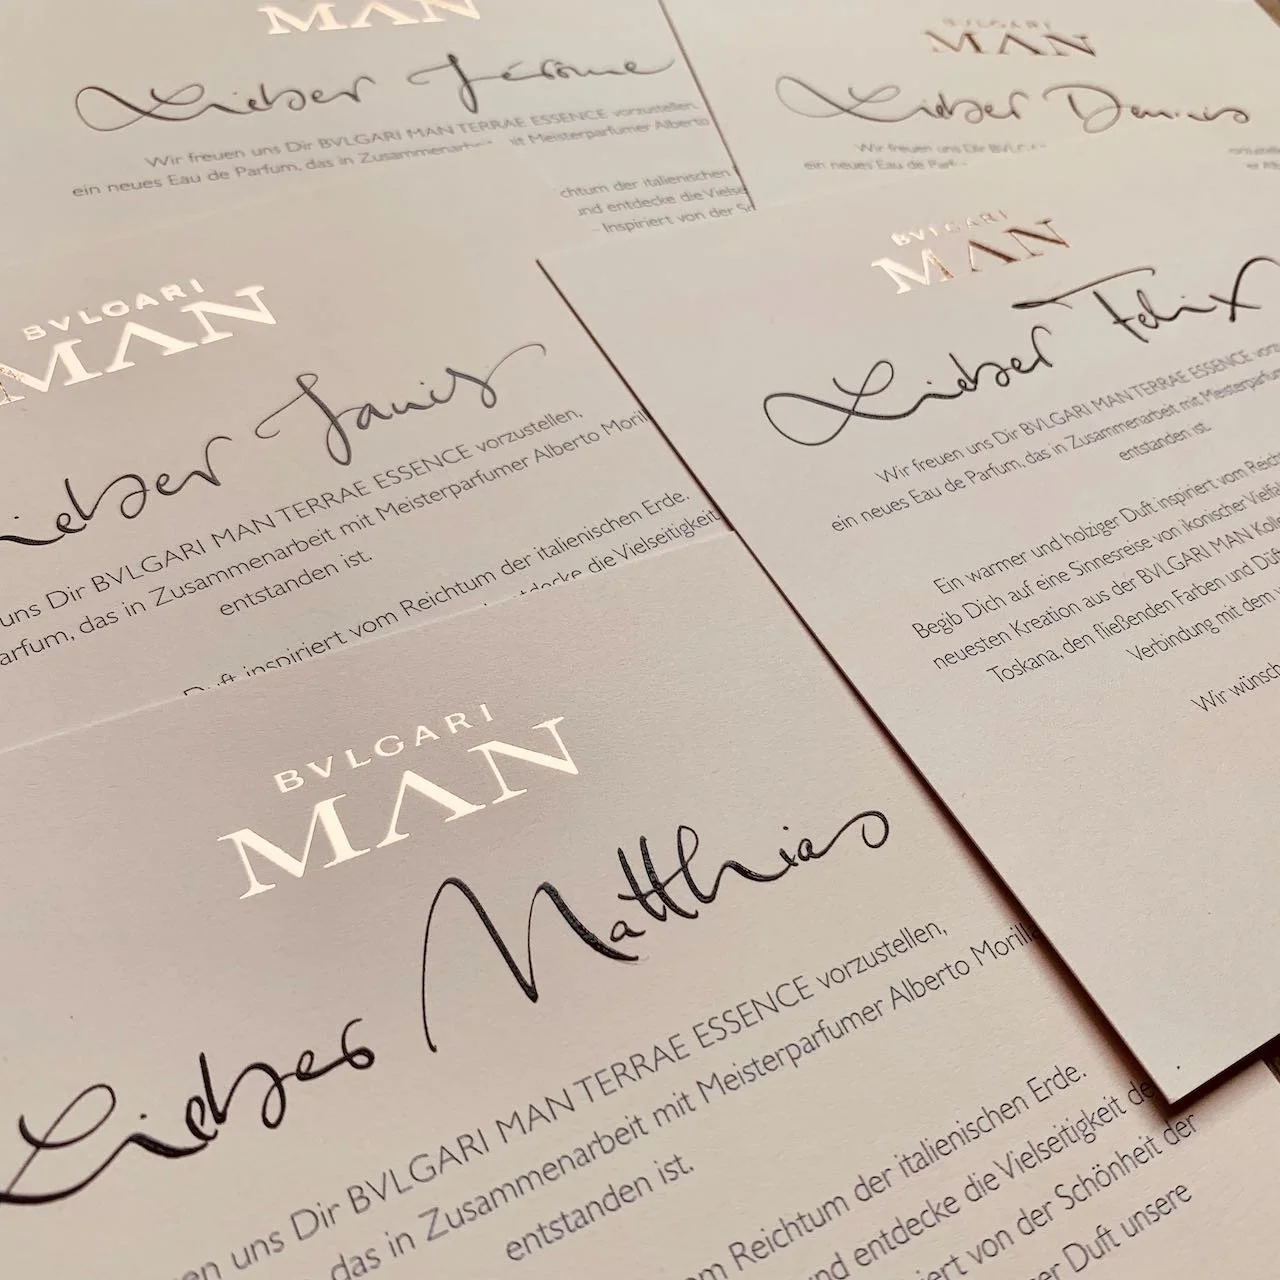 MAN
Lieber Jérôme
Wir freuen uns Dir BVLGARI MAN TERRAE ESSENCE vorzustellen,
ein neues Eau de Parfum, das in Zusammenarb it Meisterparfumer Alberto
chtum der italienischen
und entdecke die Vielse
Inspiriert von der Sc
BVLGARI
MAN
Lieber Dennis
Wir freuen uns Dir BVLG
ein neues Eau de Parf
BVLGARI
MAN
Lieber Janis
uns Dir BVLGARI MAN TERRAE ESSENCE vorzustellen,
arfum, das in Zusammenarbeit mit Meisterparfumer Alberto Morill
entstanden ist.
Duft inspiriert vom Reichtum der italienischen Erde.
entdecke die Vielseitigkeit
BVLGARI
MAN
Lieber Felix
Wir freuen uns Dir BVLGARI MAN TERRAE ESSENCE vorzu
ein neues Eau de Parfum, das in Zusammenarbeit mit Meisterparfum
entstanden ist.
Ein warmer und holziger Duft inspiriert vom Reich
Begib Dich auf eine Sinnesreise von ikonischer Vielfal
neuesten Kreation aus der BVLGARI MAN Kolle
Toskana, den fließenden Farben und Düft
Verbindung mit dem
Wir wünsch
BVLGARI
MAN
Lieber Matthias
en uns Dir BVLGARI MAN TERRAE ESSENCE vorzustellen,
das in Zusammenarbeit mit Meisterparfumer Alberto Morilla
entstanden ist.
m Reichtum der italienischen Erde.
nd entdecke die Vielseitigkeit de
iert von der Schönheit der
er Duft unsere